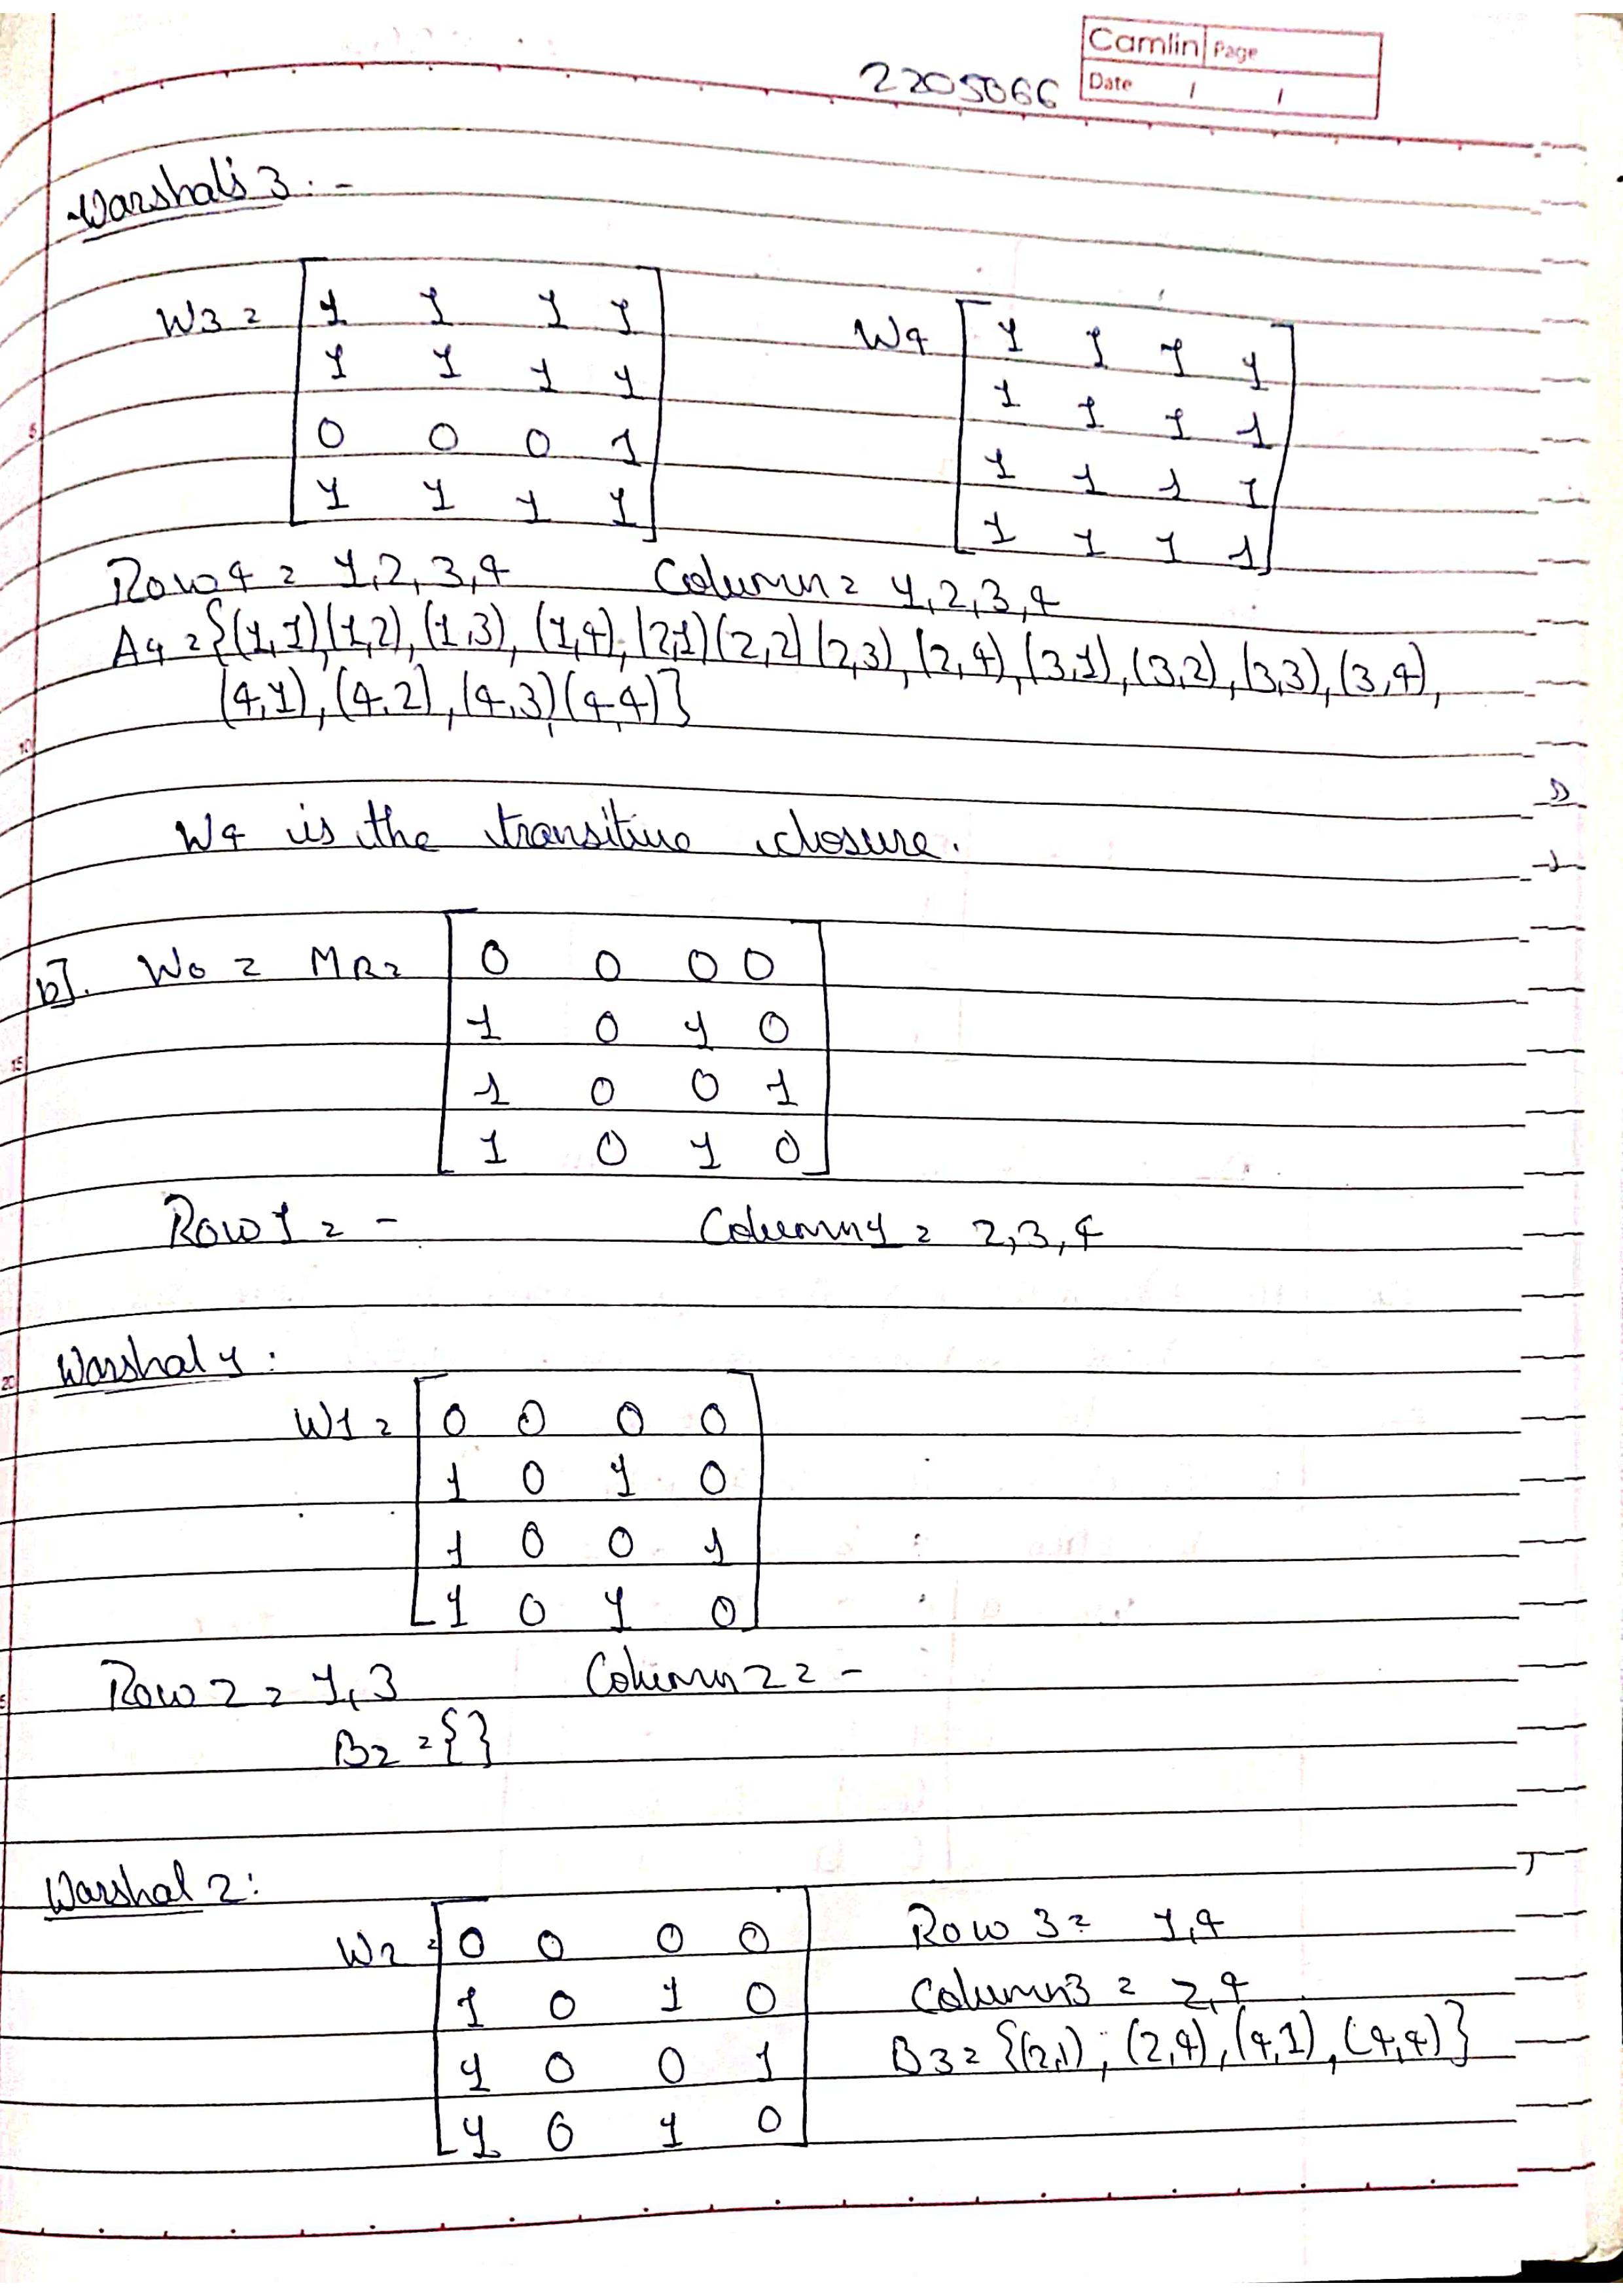 Camlin Page
Date / /
2205066
Warshal's 3 : -
W3 = 1 1 1 1
1 1 1 1
0 0 0 1
1 1 1 1
W4 1 1 1 1
1 1 1 1
1 1 1 1
1 1 1 1
Row 4 = 1,2,3,4 Column = 1,2,3,4
A4 = {(1,1)(1,2),(1,3),(1,4),(2,1)(2,2)(2,3),(2,4),(3,1),(3,2),(3,3),(3,4),
(4,1),(4,2),(4,3)(4,4)}
W4 is the transitive closure.
b]. W0 = MR= 0 0 0 0
1 0 1 0
1 0 0 1
1 0 1 0
Row 1 = - Column 1 = 2,3,4
Warshal 1 :
W1 = 0 0 0 0
1 0 1 0
1 0 0 1
1 0 1 0
Row 2 = 1,3 Column 2 = -
B2 = { }
Warshal 2 :
W2 = 0 0 0 0
1 0 1 0
1 0 0 1
1 0 1 0
Row 3 = 1,4
Column 3 = 2,4
B3 = {(2,1), (2,4),(4,1),(4,4)}
5
10
15
20